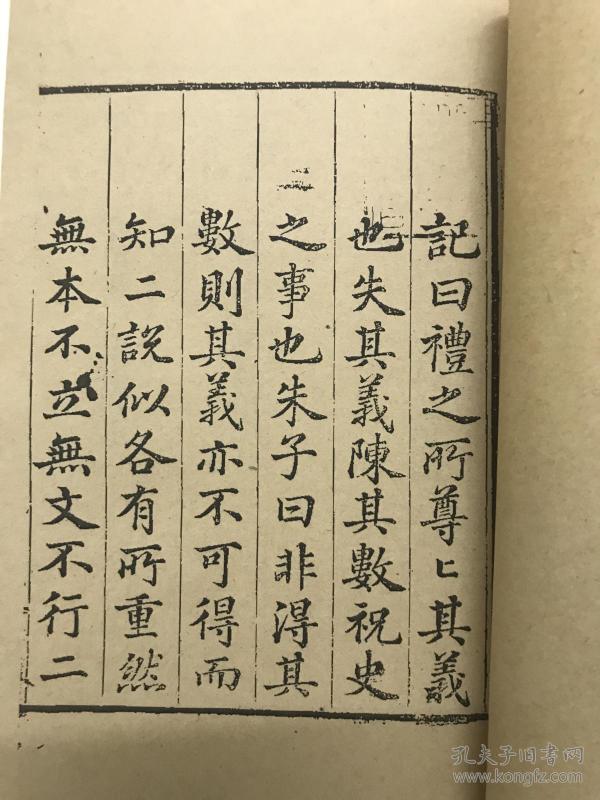 記曰禮之所尊〻其義
也失其義陳其數祝史
之事也朱子曰非得其
數則其義亦不可得而
知二說似各有所重然
無本不立無文不行二
孔夫子旧书网
www.kongfz.com